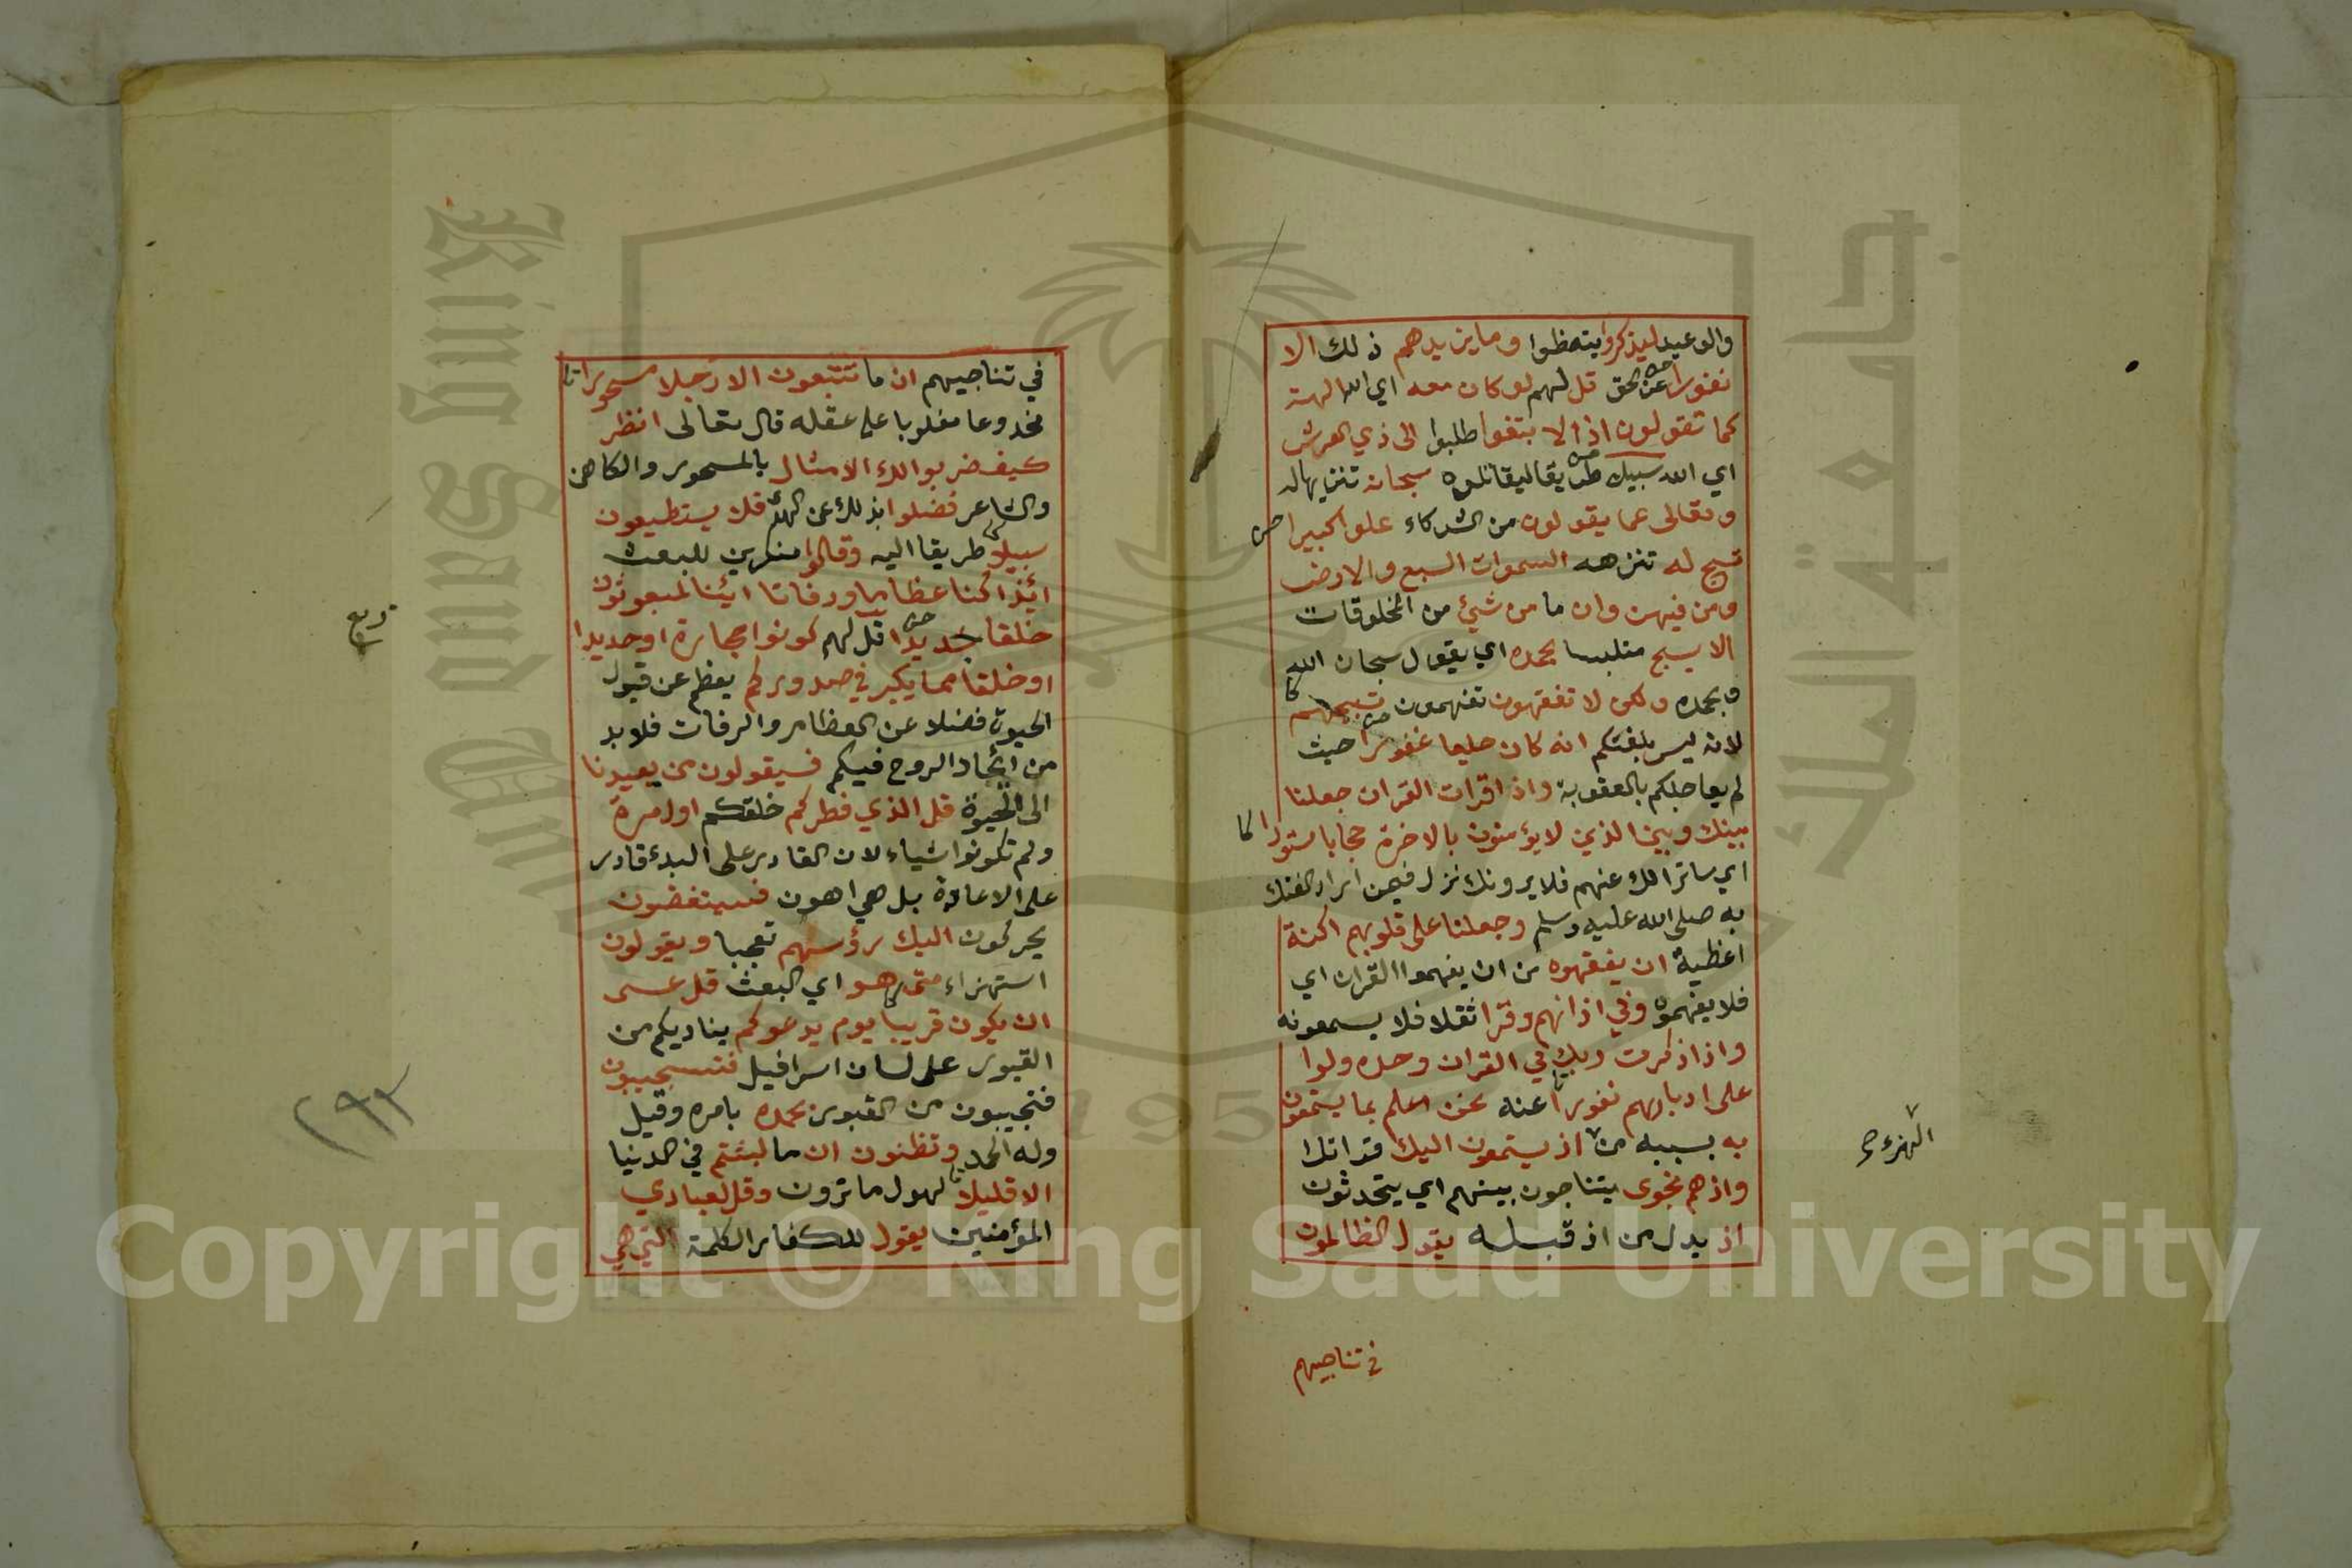 والوعيد ليذكروا يتعظوا وما يزيدهم ذلك الا
نفورا عن الحق قل لهم لو كان معه اي الله الهة
كما تقولون اذا لا بتغوا طلبوا الى ذي العرش
اي الله سبيلا طريقا ليقاتلوه سبحانه تنزيها له
وتعالى عما يقولون من الشركاء علوا كبيرا
تسبح له تنزهه السموات السبع والارض
ومن فيهن وان ما من شيئ من المخلوقات
الا يسبح متلبسا بحمده اي يقول سبحان الله
وبحمده ولكن لا تفقهون تفهمون تسبيحهم
لانه ليس بلغتكم انه كان حليما غفورا حيث
لم يعاجلكم بالعقوبة واذا قرات القران جعلنا
بينك وبين الذين لا يؤمنون بالاخرة حجابا مستورا
اي ساترا لك عنهم فلا يرونك نزل فيمن اراد الفتك
به صلى الله عليه وسلم وجعلنا على قلوبهم اكنة
اغطية ان يفقهوه من ان يفهموا القران اي
فلا يفهموه وفي اذانهم وقرا ثقلا فلا يسمعونه
واذا ذكرت ربك في القران وحده ولوا
على ادبارهم نفورا عنه نحن اعلم بما يستمعون
به بسببه من اذ يستمعون اليك قراتك
واذ هم نجوى يتناجون بينهم اي يتحدثون
اذ بدل من اذ قبله يقول الظالمون
في تناجيهم
الهزء صح
في تناجيهم ان ما تتبعون الا رجلا مسحورا
مخدوعا مغلوبا على عقله قال تعالى انظر
كيف ضربوا لك الامثال بالمسحور والكاهن
والشاعر فضلوا بذلك عن الهدى فلا يستطيعون
سبيلا طريقا اليه وقالوا منكرين للبعث
ائذا كنا عظاما ورفاتا ائنا لمبعوثون
خلقا جديدا قل لهم كونوا حجارة او حديدا
او خلقا مما يكبر في صدوركم يعظم عن قبول
الحيوة فضلا عن العظام والرفات فلا بد
من ايجاد الروح فيكم فسيقولون من يعيدنا
الى الحيوة قل الذي فطركم خلقكم اول مرة
ولم تكونوا شياء لان القادر على البدء قادر
على الاعادة بل هي اهون فسينغضون
يحركون اليك رؤسهم تعجبا ويقولون
استهزاء متى هو اي البعث قل عسى
ان يكون قريبا يوم يدعوكم يناديكم من
القبور على لسان اسرافيل فتستجيبون
فتجيبون من القبور بحمده بامره وقيل
وله الحمد وتظنون ان ما لبثتم في الدنيا
الا قليلا لهول ما ترون وقل لعبادي
المؤمنين يقول للكفار الكلمة التي هي
ربع
٢٩٣
جامعة الملك
King Saud Univ
1957
Copyright © King Saud University